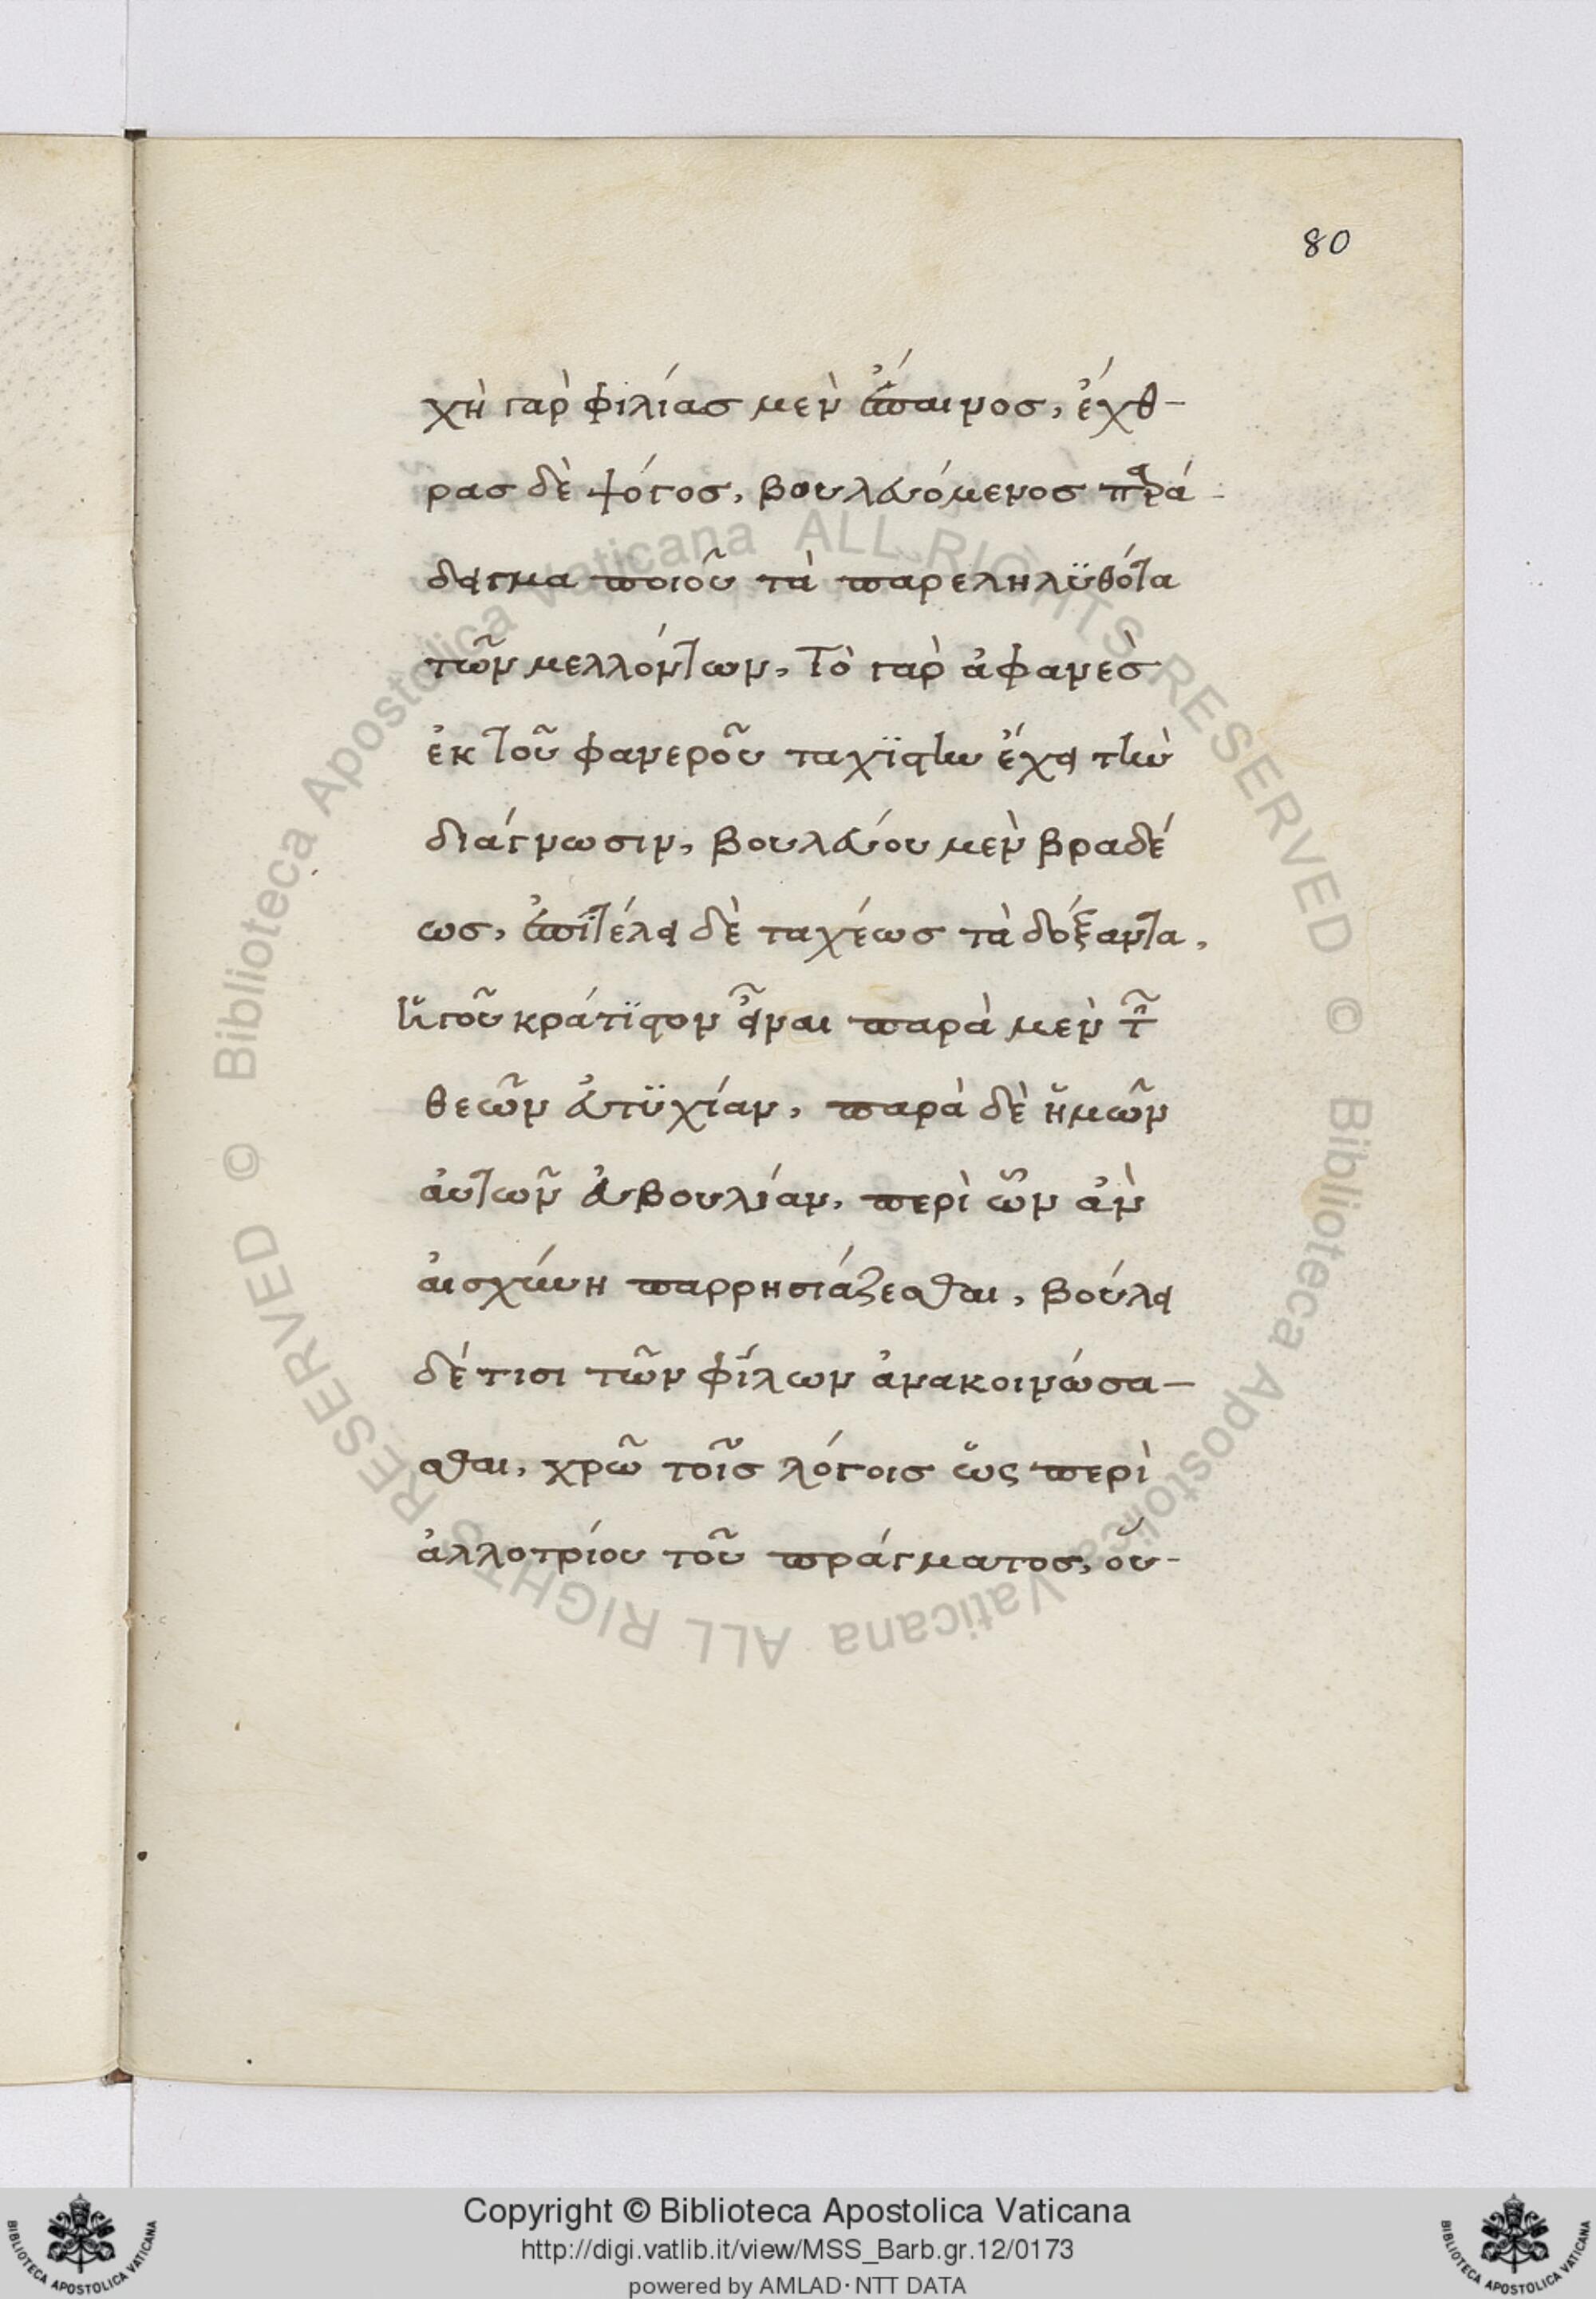 80
χὴ γαρ φιλίας μεν ἔπαινος, έχθ-
ρας δὲ ψόγος, βουλευόμενος παρά-
δειγμα ποιοῦ τὰ παρεληλϋθότα
τῶν μελλόντων, Τὸ γαρ ἀφανες
ἐκ τοῦ φανεροῦ ταχϊστην ἔχει τὴν
διάγνωσιν, βουλεύου μεν βραδέ
ως, ἐπϊτέλει δὲ ταχέως τὰ δόξαντα,
ἡγοῦ κράτϊστον εἶναι παρὰ μεν τῶν
θεῶν εὐτϋχίαν, παρὰ δὲ ἡμῶν
αὐτῶν εὐβουλίαν, περὶ ὧν ἀν
αἰσχύνη παρρησιάζεσθαι, βούλει
δέ τισι τῶν φίλων ἀνακοινώσα-
σθαι, χρῶ τοῖς λόγοις ὡς περὶ
ἀλλοτρίου τοῦ πράγματος, οὕ-
Copyright © Biblioteca Apostolica Vaticana
http://digi.vatlib.it/view/MSS_Barb.gr.12/0173
powered by AMLAD·NTT DATA
BIBLIOTECA APOSTOLICA VATICANA
BIBLIOTECA APOSTOLICA VATICANA
© Biblioteca Apostolica Vaticana ALL RIGHTS RESERVED
© Biblioteca Apostolica Vaticana ALL RIGHTS RESERVED